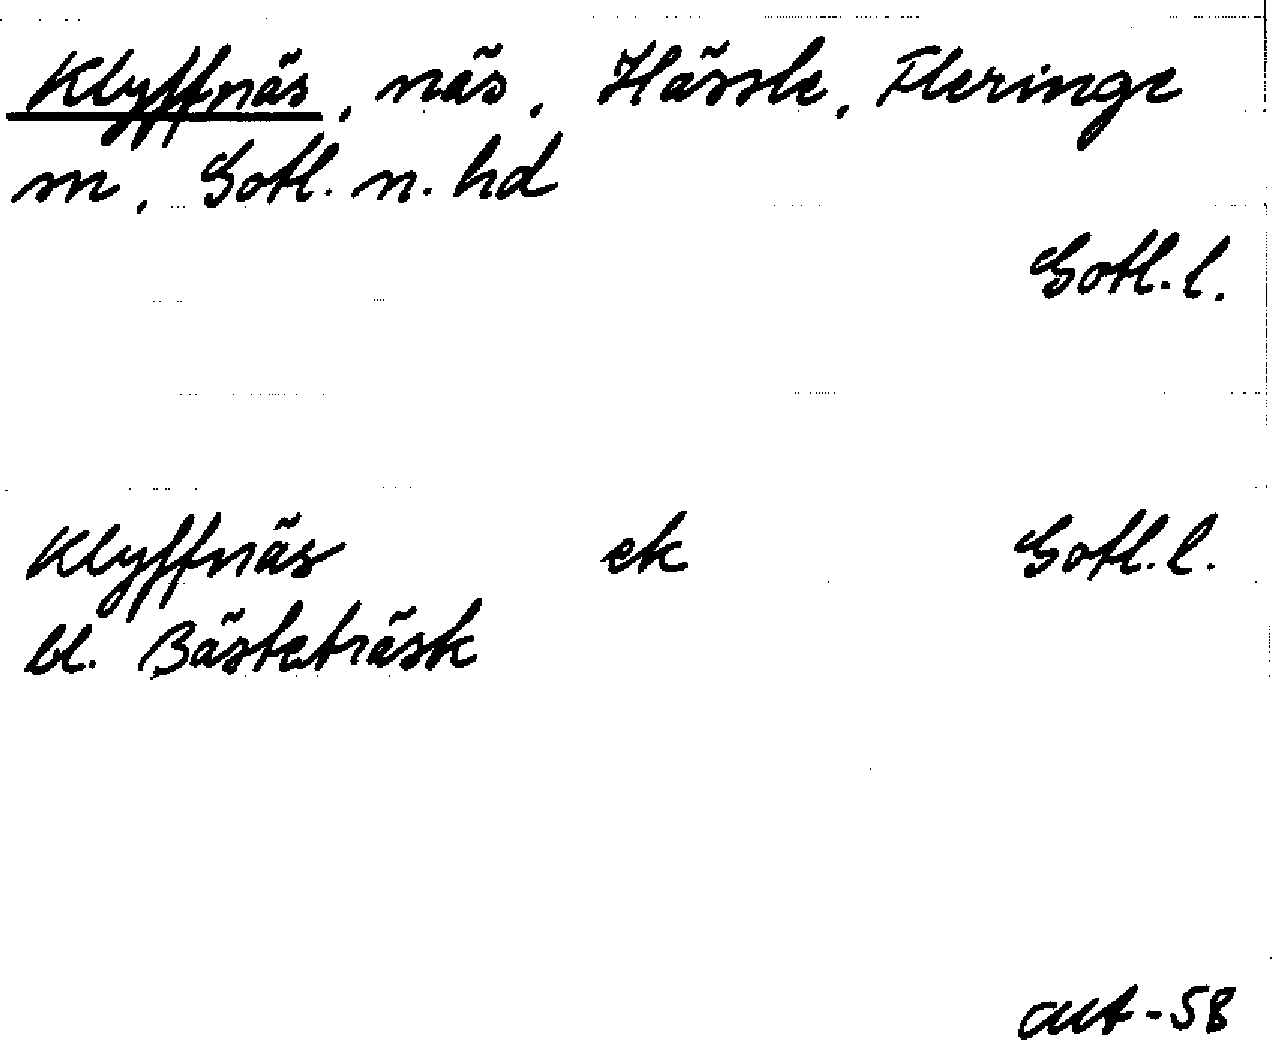 Klyffnäs, näs, Hässle, Fleringe
m, Gotl. n. hd
Gotl. l.
Klyffnäs ek Gotl. l.
bl. Bästeträsk
-58